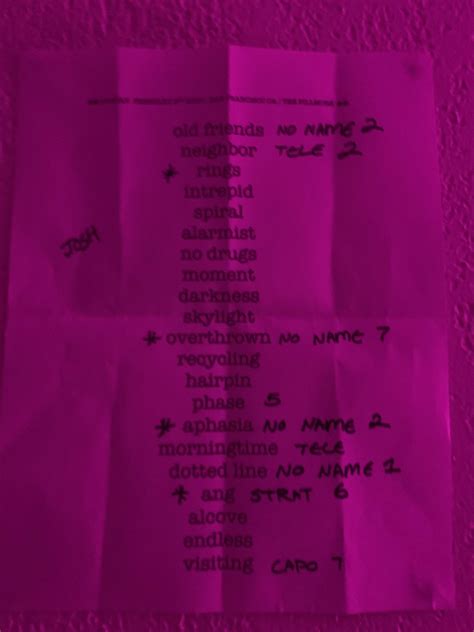 SAN FRANCISCO CA / THE FILLMORE
old friends NO NAME 2
neighbor TELE 2
* rings
intrepid
spiral
alarmist
JOSH
no drugs
moment
darkness
skylight
* overthrown NO NAME 7
recycling
hairpin
phase 5
* aphasia NO NAME 2
morningtime TELE
dotted line NO NAME 1
* ang STRAT 6
alcove
endless
visiting CAPO 7